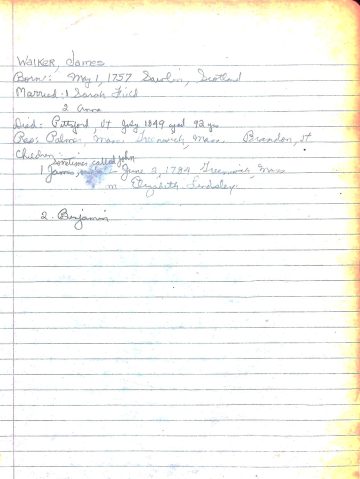 Walker, James
Born: May 1, 1757 Scotland
Married: 1 Sarah
2 Anna
Died: Pittsford, Vt July 1849 aged 92 yrs
Res: Palmer, Mass. Greenwich, Mass. Brandon, Vt
Children
sometimes called John
1 James, June 2, 1784 Greenwich, Mass
m Elizabeth Lindsley
2. Benjamin